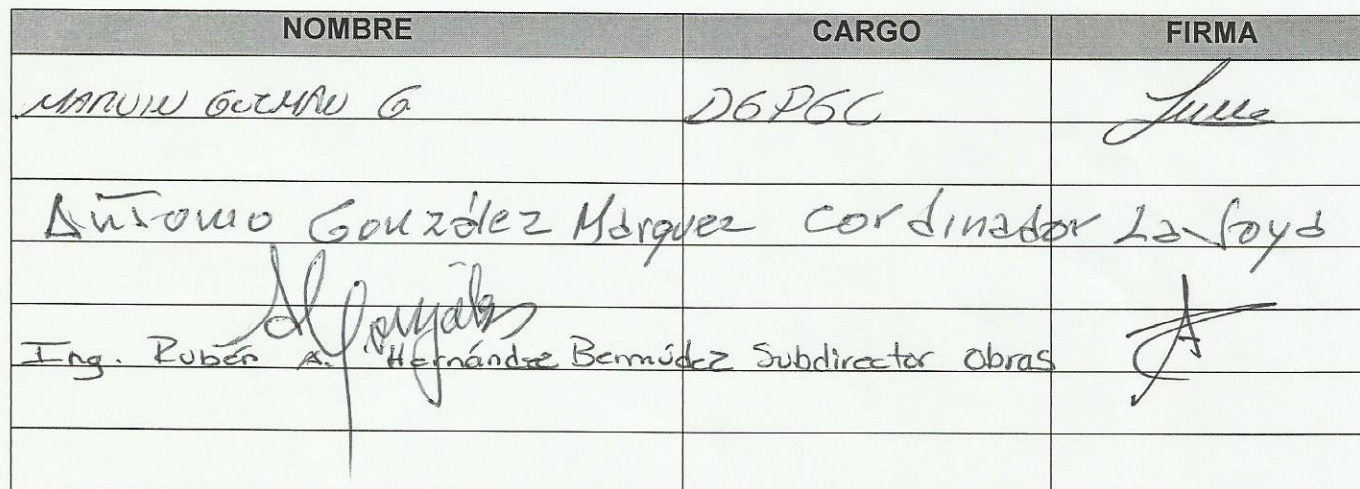 NOMBRE CARGO FIRMA
MARVIN GUZMAN G DGPGC
Antonio González Márquez Cordinador La Joya
Ing. Rubén A. Hernández Bermúdez Subdirector Obras